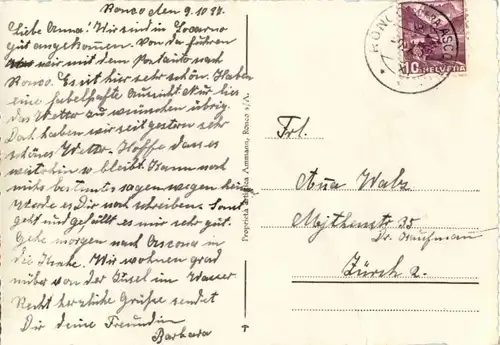 Ronco den 9.10.37.
Liebe Anna! Wir sind in Locarno
gut angekommen. Von da fuhren
wir mit dem Postauto nach
Ronco. Es ist hier sehr schön. Haben
eine fabelhafte Aussicht. Nur lies
das Wetter zu wünschen übrig.
Doch haben wir seit gestern sehr
schönes Wetter. Hoffe dass es
weiterhin so bleibt. Kann noch
nichts bestimmtes sagen wegen
werde es Dir noch schreiben. Sonst
geht und gefällt es mir sehr gut.
Gehe morgen nach Ascona in
die Kirche. Wir wohnen grad
von der Insel im Wasser
Recht herzliche Grüsse sendet
Dir deine Freundin
Barbara
Proprietà Ammann, Ronco s/A.
RONCO
ASCONA
10 HELVETIA
Frl.
Anna Walz
Mythenstr 35
Dr. Kaufmann
Zürch 2.